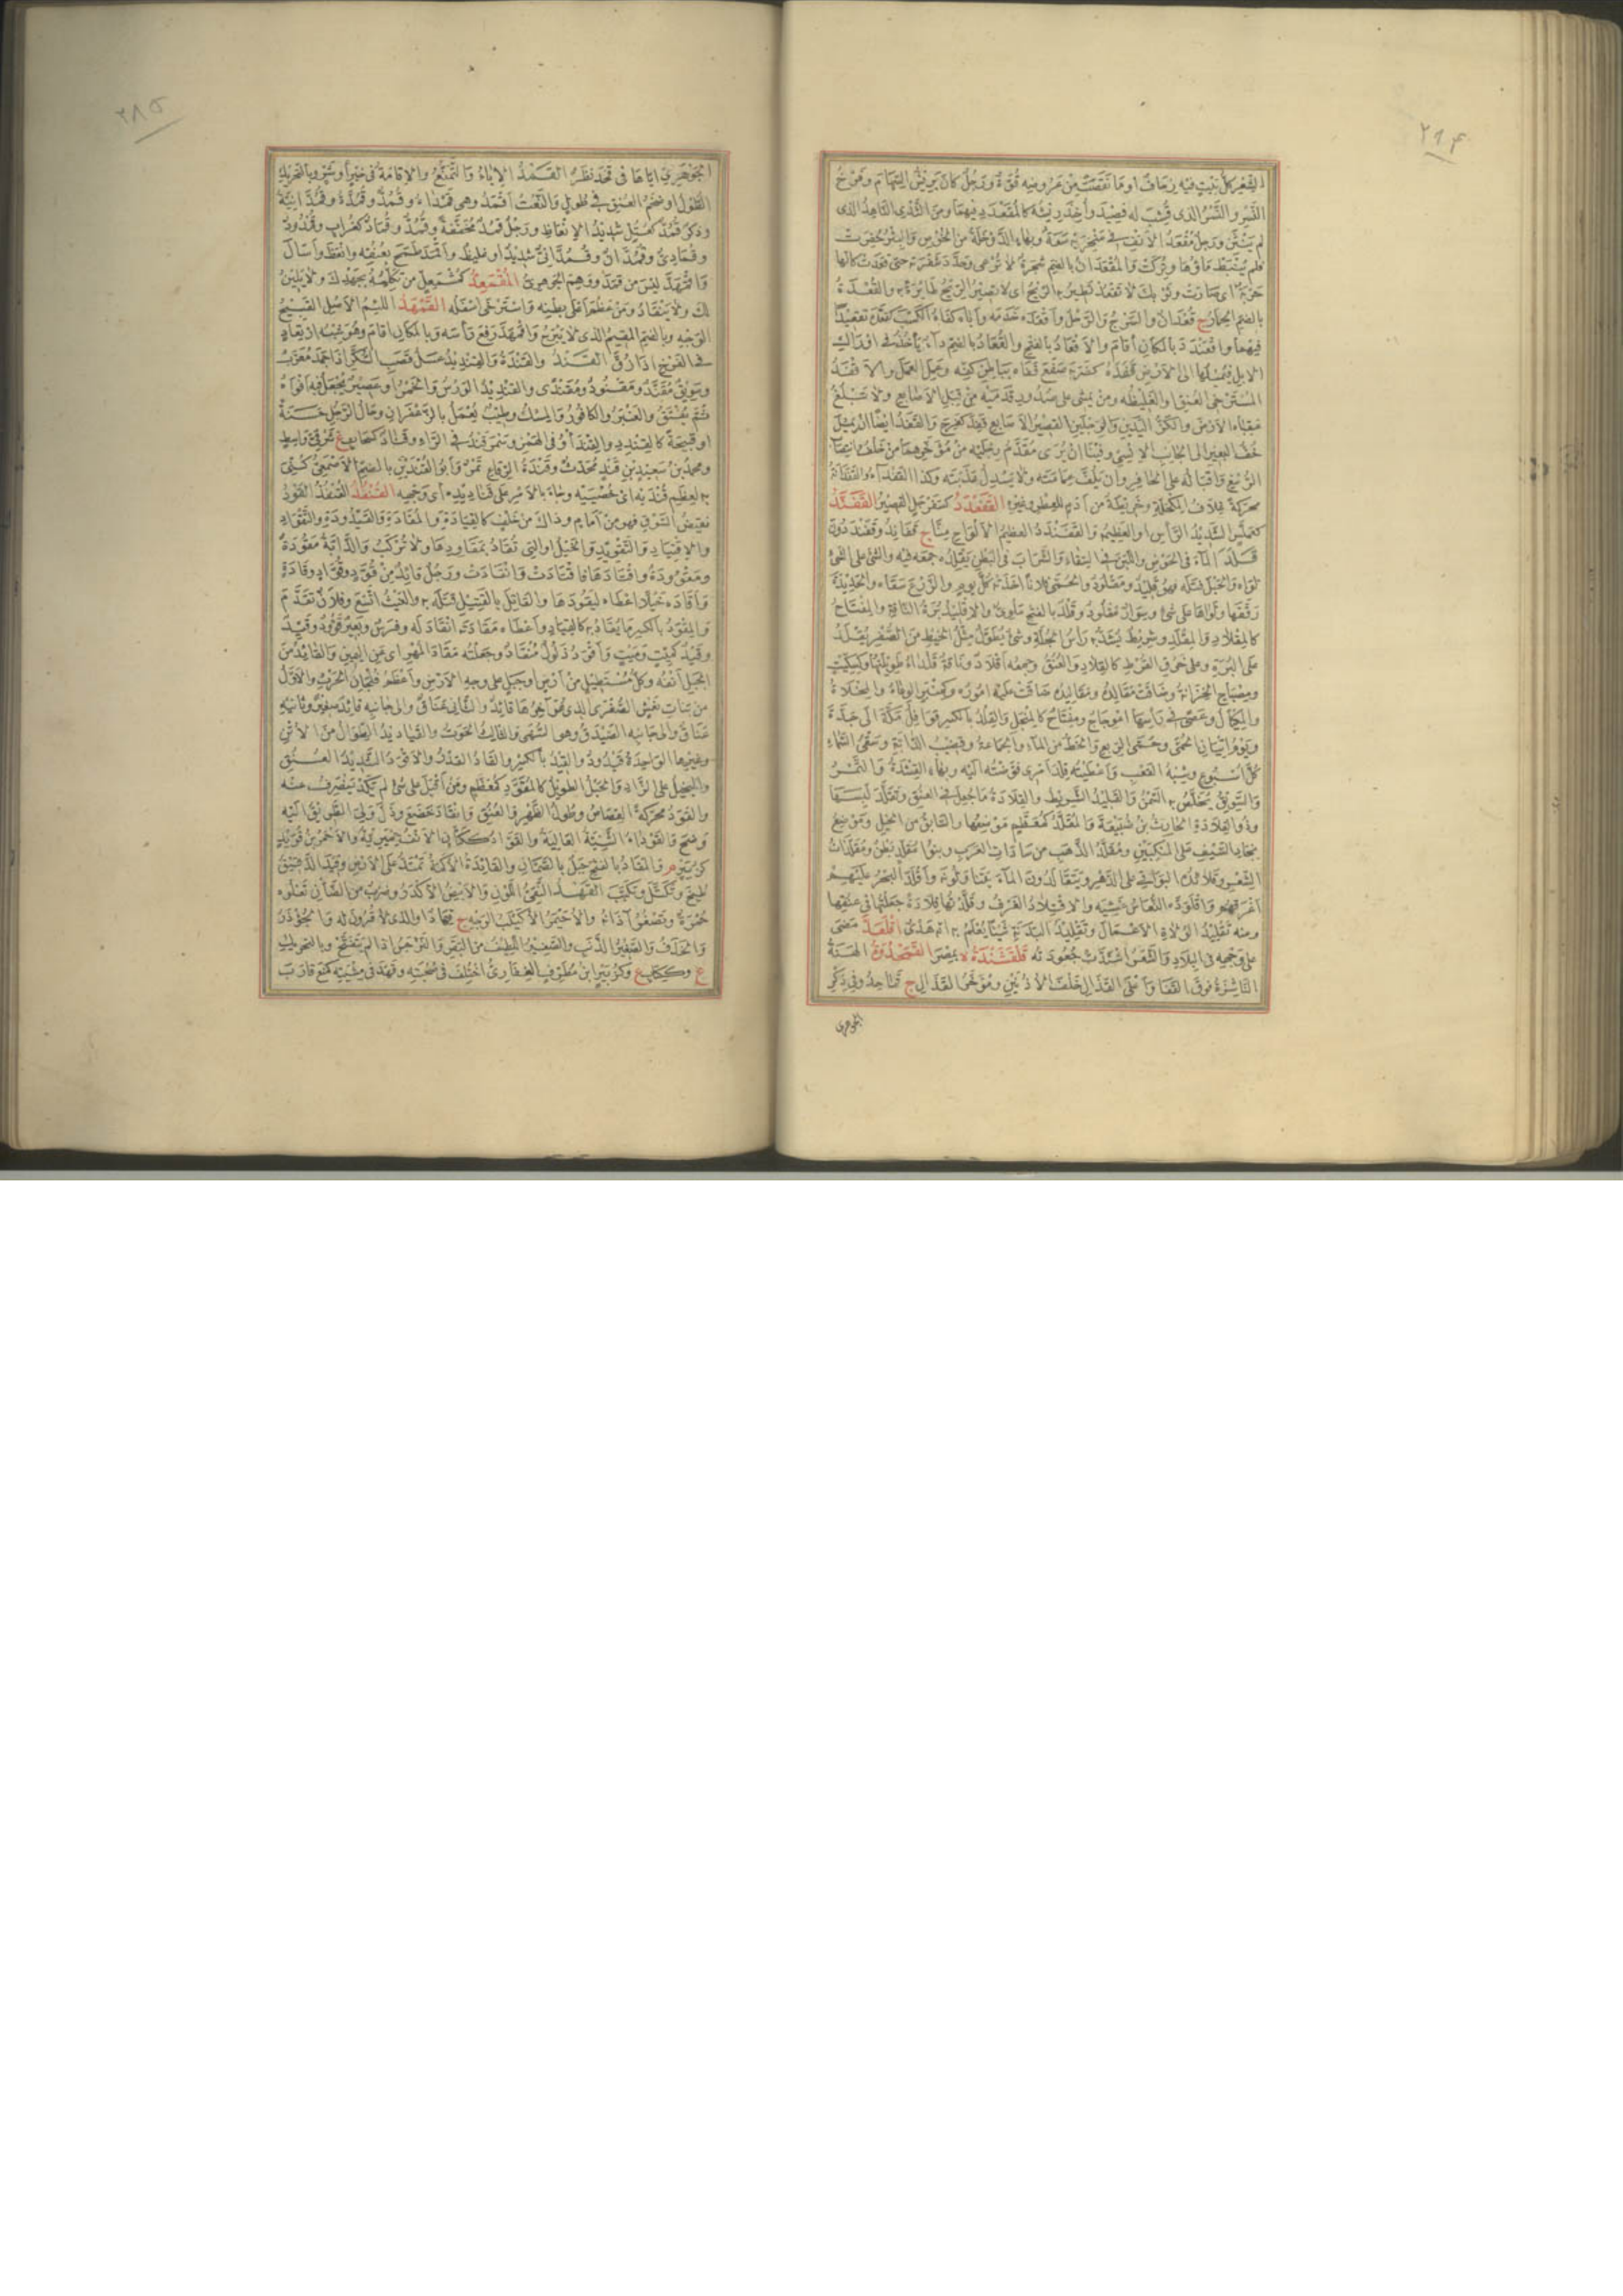 ٢٨٤
القعر كل بيت فيه زحاف او ما نقصت من عروضه قوة ورجل كان يريش السهام وفرخ
النسر والنسر الذي قشب له فصيد وأخذ ريشه كالمقعدد فيهما ومن الثدي الناهد الذي
لم ينثن ورجل مقعد الأنف في منخريه سعة وبهاء الدوخلة من الخوص والبئر حفرت
فلم ينبط ماؤها وتركت والمقعدان بالضم شجرة لا ترعى وحدد شفرته حتى قعدت كأنها
حربة أي صارت وثوبك لا تقعد تطير به الريح أي لا تصير الريح طائرة به والقعدة
بالضم الحمار ج قعدات والسرج والرحل وأقعده خدمه وأباه كفاه الكسب كقعده تقعيدا
فيهما واقعندد بالمكان أقام والاقعاد بالفتح والقعاد بالضم داء يأخذ في اوراك
الابل فيميلها الى الارض قفده كضربه صفع قفاه بباطن كفه وعمل العمل والاقفد
المسترخي العنق او الغليظه ومن يمشي على صدور قدميه من قبل الاصابع ولا تبلغ
عقباه الارض والكز اليدين والرجلين القصير الاصابع قفد كفرح والقفد ايضا ان يميل
خف البعير الى الجانب الانسي وفينا ان يرى مقدم رجليه من مؤخرهما من خلف وانتصاب
الرسغ واقباله على الحافر وان يلف عمامته ولا يسدل عذبته وكذا القفداء والقفدانة
محركة غلاف المكحلة وخريطة من ادم للعطر وغيره القفعدد كسفرجل القصير القفند
كعملس الشديد الرأس او العظيمه والقفندد العظيم الالواح منا ج قفاند وقفندون
قلد الماء في الحوض واللبن في السقاء والشراب في البطن يقلده جمعه فيه والشئ على الشئ
لواه والحبل فتله فهو قليد ومقلود والحمى فلانا اخذته كل يوم والزرع سقاه والحديدة
رققها ولواها على شئ وسوار مقلود وقلد بالفتح ملوي والاقليد برة الناقة والمفتاح
كالمقلاد والمقلد وشريط يشد به رأس الجلة وشئ يطول مثل الخيط من الصفر يقلد
على البرة وعلى خرق القرط كالقلاد والعنق وجمعه اقلاد وناقة قلداء طويلتها وكسكيت
ومصباح الخزانة وضاقت مقالده ومقاليده ضاقت عليه اموره وكمنبر الوعاء والمخلاة
والمكيال وعصى في رأسها اعوجاج ومفتاح كالمنجل والقلد بالكسر قوافل مكة الى جدة
ويوم اتيان الحمى وحمى الربع والحظ من الماء والجماعة وقضيب الدابة وسقي السماء
كل اسبوع وشبه القعب واعطيته قلد امري فوضته اليه وبهاء القشدة والتمر
والسويق يخلص به السمن والقليد الشريط والقلادة ما جعل في العنق وتقلد لبسها
وذو القلادة الحارث بن ضبيعة والمقلد كمعظم موضعها والسابق من الخيل وموضع
نجاد السيف على المنكبين ومقلد الذهب من سادات العرب وبنو مقلد بطن ومقلدات
الشعر وقلائده البواقي على الدهر ويتقالدون الماء يتناوبونه واقلد البحر عليهم
اغرقهم واقلوده النعاس غشيه والاقتلاد الغرف وقلدتها قلادة جعلتها في عنقها
ومنه تقليد الولاة الاعمال وتقليد البدنة شيئا يعلم به انها هدي اقلعد مضى
على وجهه في البلاد والشعر اشتدت جعودته قلقشندة ة بمصر القمحدوة الهنة
الناشزة فوق القفا واعلى القذال خلف الاذنين ومؤخر القذال ج قماحد وفي ذكر
الجوهري
٢٨٥
الجوهري اياها في قحد نظر القمد الاباء والتمنع والاقامة في خير أو شر وبالتحريك
الطول او ضخم العنق في طول والنعت اقمد وهي قمداء وقمد وقمدة وقمدانية
وذكر قمد كعتل شديد الانعاظ ورجل قمد مخففة وقمد وقماد كغراب وقمدود
وقمادي وقمدان وقمداني شديد او غليظ واقمد طمح بعنقه وانعظ واسال
واقمهد ليس من قمد ووهم الجوهري المقمعد كمشمعل من تكلمه بجهدك ولا يلين
لك ولا ينقاد ومن عظم اعلى بطنه واسترخى اسفله القمهد اللئيم الاصل القبيح
الوجه وبالضم المقيم الذي لا يبرح واقمهد رفع رأسه وبالمكان اقام وهو شبه ارتعاد
في الفرخ اذا زق القند والقندة والقنديد عسل قصب السكر اذا جمد معرب
وسويق مقند ومقنود ومقندى والقنديد الورس والخمر او عصير يجعل فيه افواه
ثم يفتق والعنبر والكافور والمسك وطيب يعمل بالزعفران وحال الرجل حسنة
او قبيحة كالقندد والقندأو في الهمز وسمرقند في الراء وقناد كسحاب ع شرقي واسط
ومحمد بن سعيد بن قند محدث وقندة الرقاع تمر وابو القندين بالضم الاصمعي كني
به لعظم قنديه اي خصييه وجاء بالامر على قناديده اي وجهه القنفد القنفذ القود
نقيض السوق فهو من امام وذاك من خلف كالقيادة والمقادة والقيدودة والتقواد
والاقتياد والتقويد والخيل او التي تقاد بمقاودها ولا تركب والدابة مقودة
ومقوودة واقتادها فاقتادت وانقادت ورجل قائد من قود وقواد وقادة
واقاده خيلا اعطاه ليقودها والقاتل بالقتيل قتله به والغيث اتسع وفلان تقدم
والمقود بالكسر ما يقاد به كالقياد واعطاه مقادته انقاد له وفرس وبعير قؤود وقيد
وقيد كميت وميت واقود ذلول منقاد وجعلته مقاد المهر اي عن اليمين والقائد من
الجبل انفه وكل مستطيل من ارض او جبل على وجه الارض واعظم فلجان الحرث والاول
من بنات نعش الصغرى الذي هو آخرها قائد والثاني عناق والى جانبه قائد صغير وثانيه
عناق والى جانبه الصيدق وهو السهى والثالث الحوت والقياديد الطوال من الاتن
وغيرها الواحدة قيدود والقيد بالكسر والقاد القدر والاقود الشديد العنق
والبخيل على الزاد والجبل الطويل كالمقود كمعظم ومن اقبل على شئ لم يكد ينصرف عنه
والقود محركة القصاص وطول الظهر والعنق وانقاد خضع وذل ولي الطريق اليه
وضح والقوداء الثنية العالية والقواد ككتان الانف حميرية والاحمر بن قويد
كزبير م والمقاد بالفتح جبل بالصمان والقائدة الاكمة تمتد على الارض وقيد الدقيق
طبخ وتكتل وتكبب القهد النقي اللون والابيض الاكدر وضرب من الضأن تعلوه
حمرة وتصغر آذانه والاحيمر الاكيلف الوجه ج قهاد او الذي لا قرون له والجؤذر
والخذف والصغير الذنب والصغير اللطيف من البقر والنرجس اذا لم يتفتح وبالتحريك
ع وككتاب ع وكزبير ابن مطرف الغفاري اختلف في صحبته وقهد في مشيته كمنع قارب